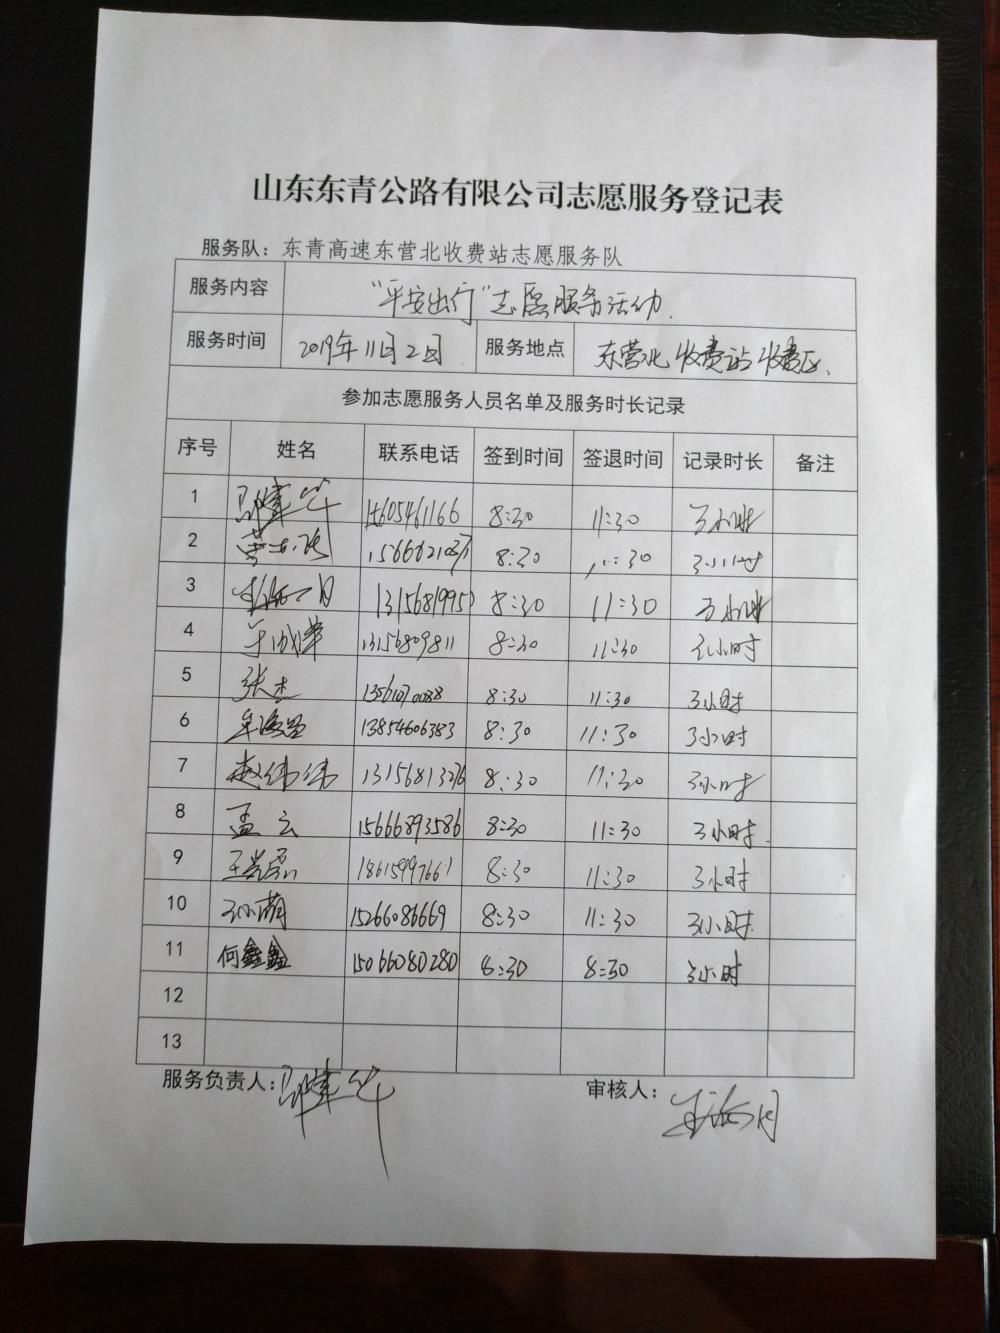 山东东青公路有限公司志愿服务登记表
服务队：东青高速东营北收费站志愿服务队
服务内容 "平安出行"志愿服务活动.
服务时间 2019年11月2日 服务地点 东营北收费站收费区.
参加志愿服务人员名单及服务时长记录
序号 姓名 联系电话 签到时间 签退时间 记录时长 备注
1 8:30 11:30 3小时
2 8:30 11:30 3小时
3 8:30 11:30 3小时
4 13156809811 8:30 11:30 3小时
5 张杰 13561070088 8:30 11:30 3小时
6 13854606383 8:30 11:30 3小时
7 赵伟伟 8:30 11:30 3小时
8 孟云 15666893586 8:30 11:30 3小时.
9 18615997661 8:30 11:30 3小时
10 孙萌 15266086669 8:30 11:30 3小时.
11 何鑫鑫 15066080280 8:30 8:30 3小时
12
13
服务负责人： 审核人：